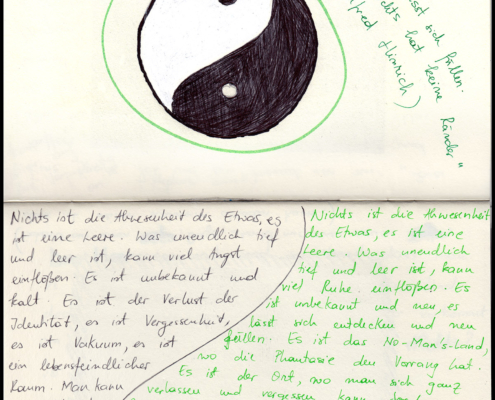 sich füllen.
hat keine Ränder"
Hinrich)
Nichts ist die Abwesenheit des Etwas, es
ist eine Leere. Was unendlich tief
und leer ist, kann viel Angst
einflößen. Es ist unbekannt und
kalt. Es ist der Verlust der
Identität, es ist Vergessenheit,
es ist Vakuum, es ist
ein lebensfeindlicher
Raum. Man kann
Nichts ist die Abwesenheit
des Etwas, es ist eine
Leere. Was unendlich
tief und leer ist, kann
viel Ruhe einflößen. Es
ist unbekannt und neu, es
lässt sich entdecken und neu
füllen. Es ist das No-Man's-Land,
wo die Phantasie den Vorrang hat.
Es ist der Ort, wo man sich ganz
verlassen und vergessen kann